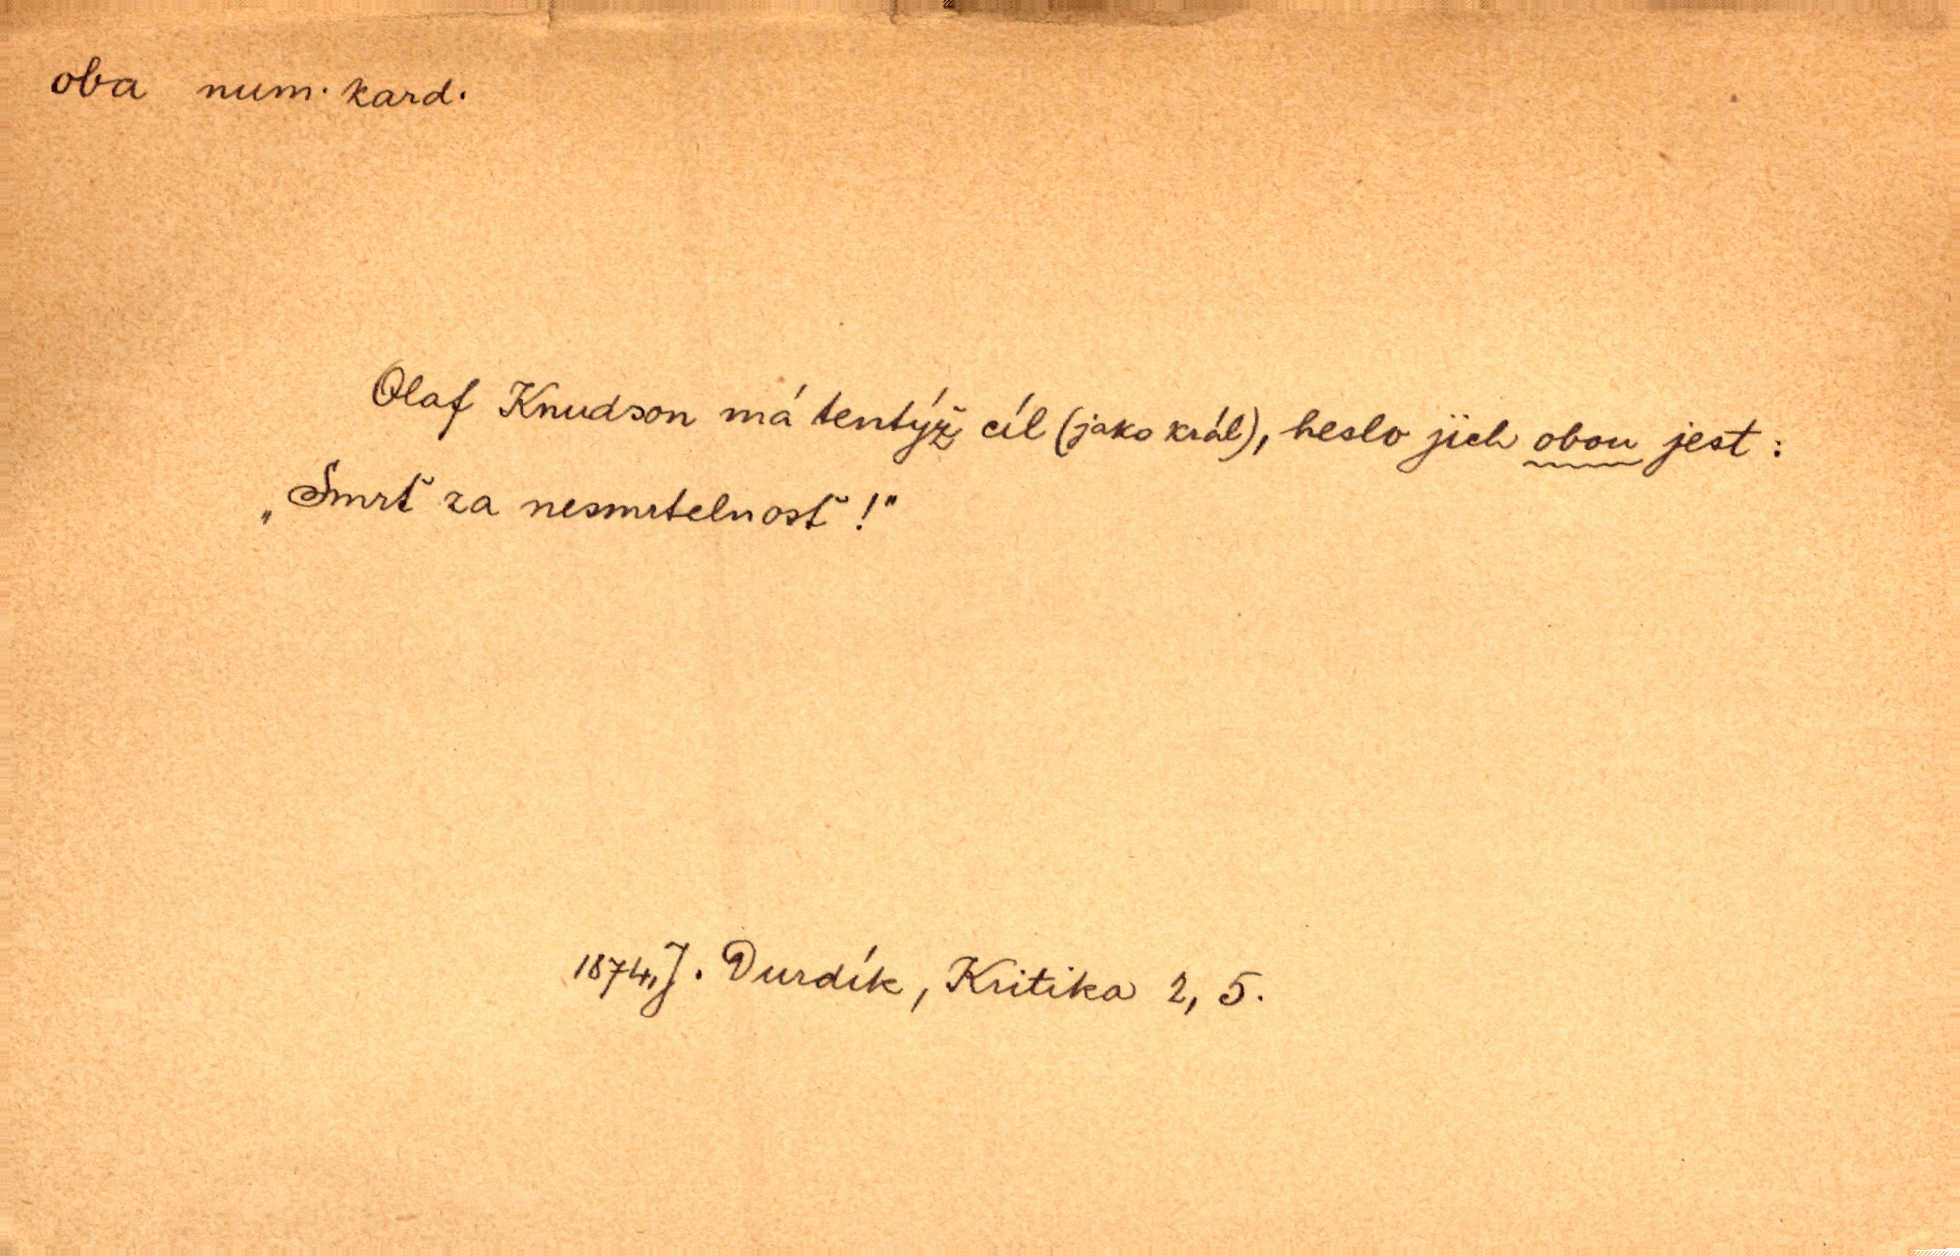 oba num. kard.
Olaf Knudson má tentýž cíl (jako král), heslo jich obou jest:
„Smrť za nesmrtelnosť!"
1874, J. Durdík, Kritika 2, 5.